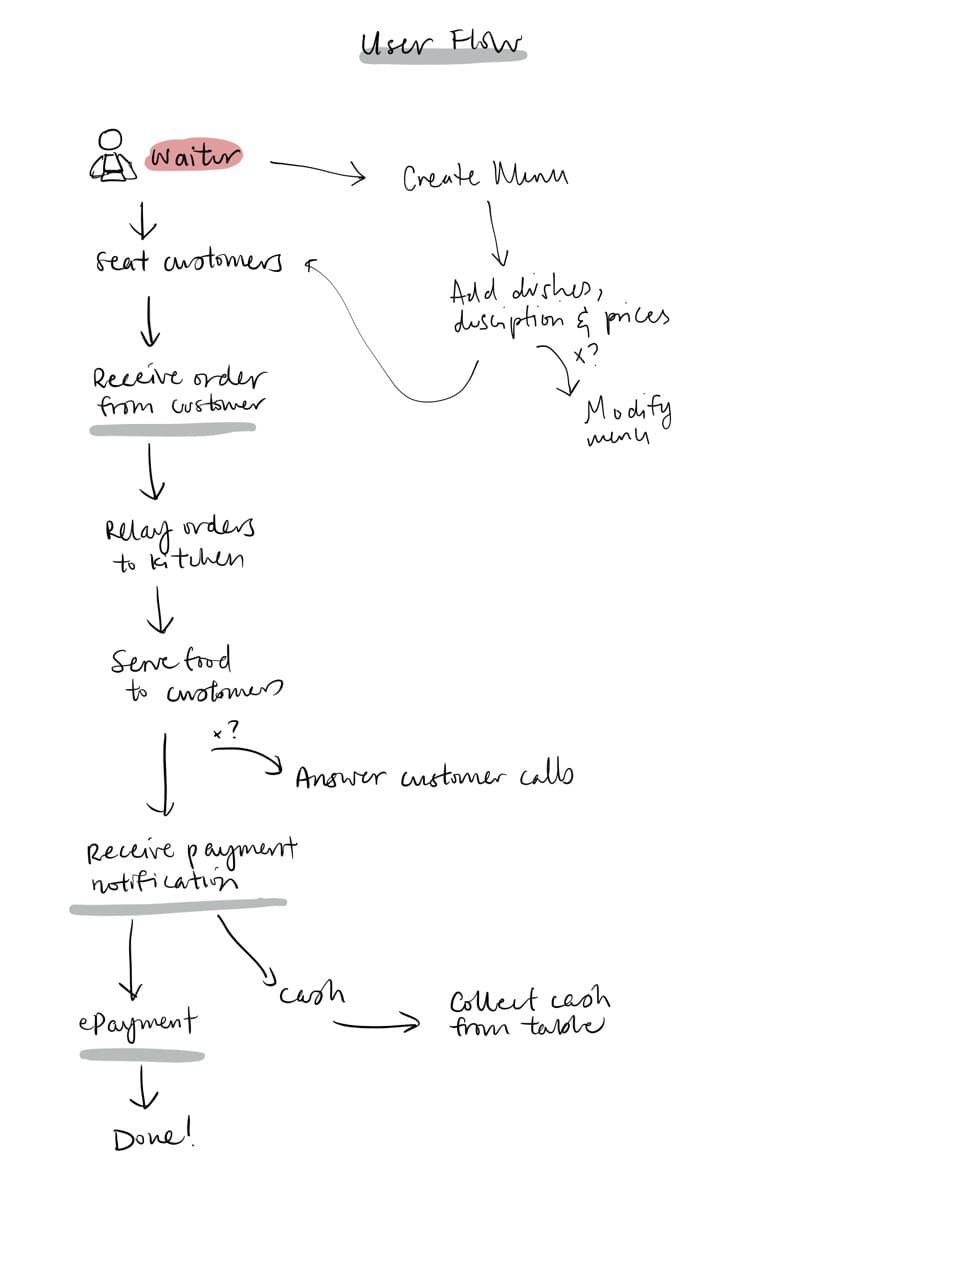 User Flow
Waiter
Create Menu
Seat customers
Add dishes,
description & prices
x?
Receive order
from customer
Modify
menu
Relay orders
to kitchen
Serve food
to customers
x?
Answer customer calls
Receive payment
notification
cash
Collect cash
from table
ePayment
Done!